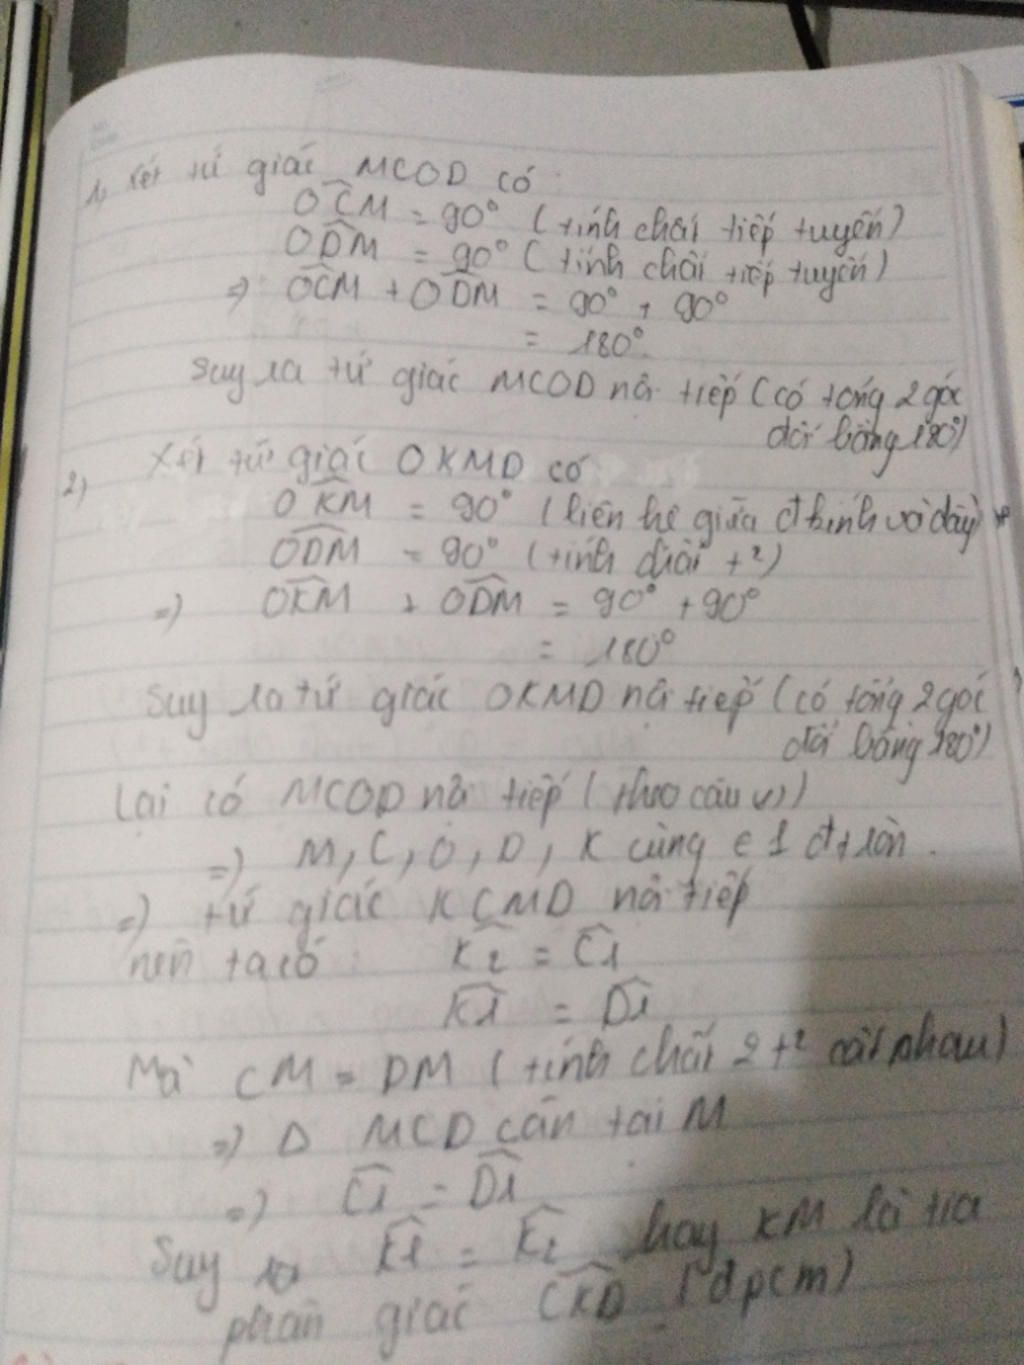 1, Xét tứ giác MCOD có :
OCM = 90° (tính chất tiếp tuyến)
ODM = 90° (tính chất tiếp tuyến)
=) OCM + ODM = 90° + 90°
= 180°.
Suy ra tứ giác MCOD nội tiếp (có tổng 2 góc
đối bằng 180°)
2) Xét tứ giác OKMD có
OKM = 90° (liên hệ giữa đ kính và dây)
ODM = 90° (tính chất t²)
=) OKM + ODM = 90° + 90°
= 180°
Suy ra tứ giác OKMD nội tiếp (có tổng 2 góc
đối bằng 180°)
Lại có MCOD nội tiếp (theo câu 1)
=) M, C, O, D, K cùng ∈ 1 đt ròn.
=) tứ giác KCMD nội tiếp
nên ta có : K2 = C1
K1 = D1
Mà CM = DM (tính chất 2 t² cắt nhau)
=) Δ MCD cân tại M
=) C1 = D1
Suy ra K1 = K2 hay KM là tia
phân giác CKD (đpcm)